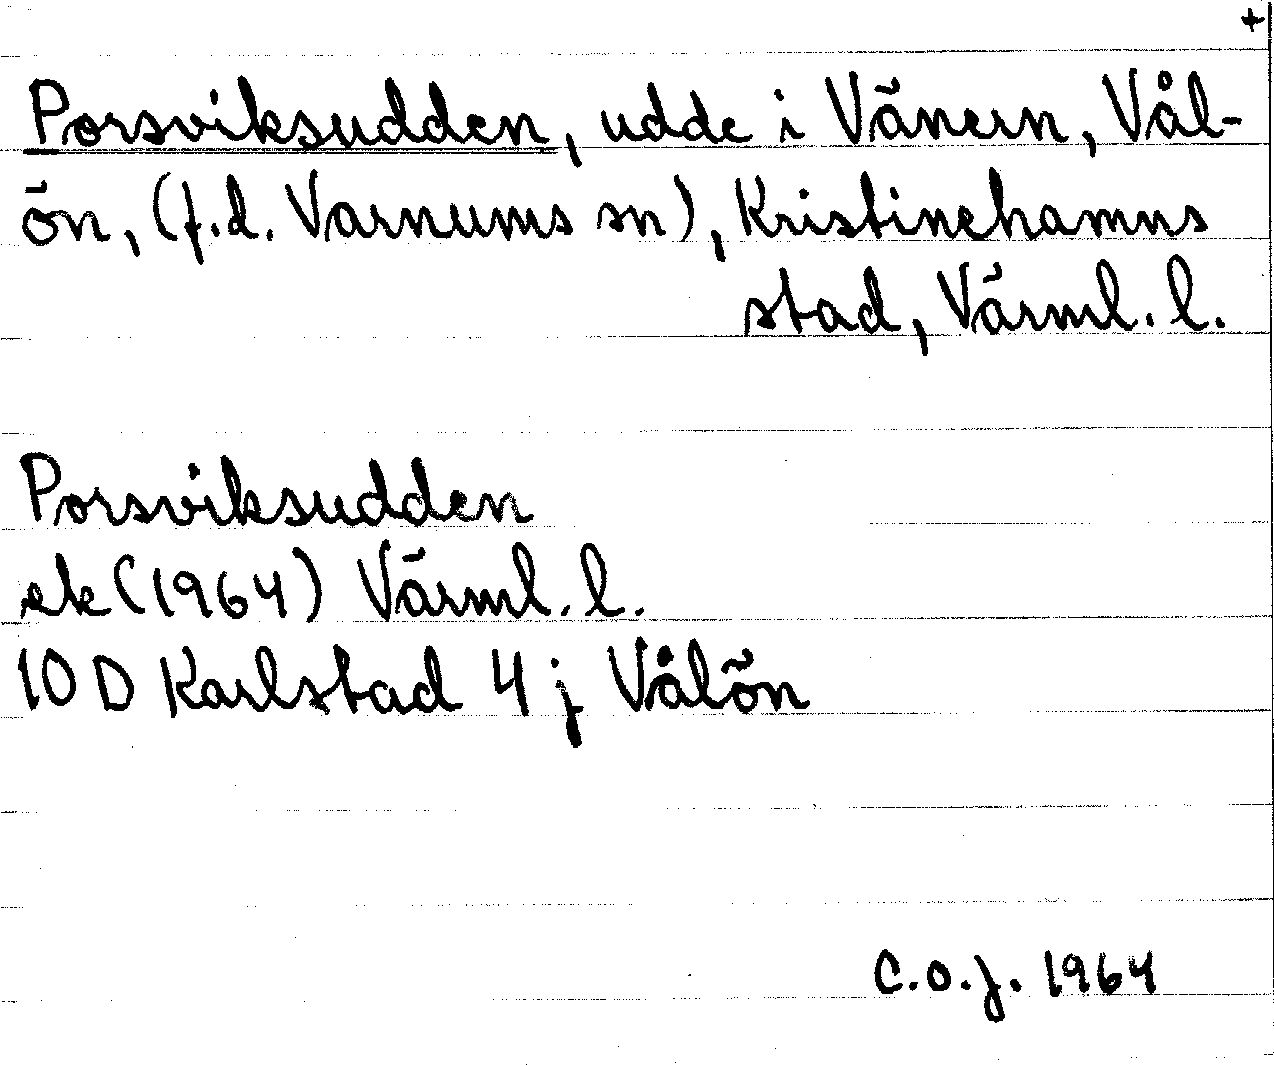 +
Porsviksudden, udde i Vänern, Vål-
ön, (f.d. Varnums sn), Kristinehamns
stad, Värml. l.
Porsviksudden
ek (1964) Värml. l.
10 D Karlstad 4 j Vålön
C.O.J. 1964